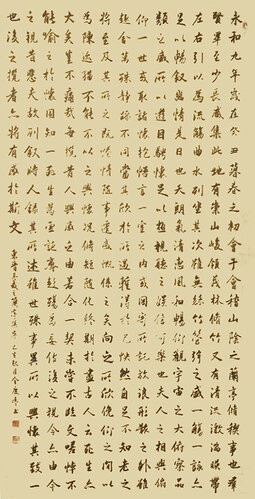 永和九年歲在癸丑暮春之初會于會稽山陰之蘭亭脩稧事也羣
賢畢至少長咸集此地有崇山峻領茂林脩竹又有清流激湍映帶
左右引以為流觴曲水列坐其次雖無絲竹管弦之盛一觴一詠亦
足以暢敘幽情是日也天朗氣清惠風和暢仰觀宇宙之大俯察品
類之盛所以遊目騁懷足以極視聽之娛信可樂也夫人之相與俯
仰一世或取諸懷抱悟言一室之內或因寄所託放浪形骸之外雖
趣舍萬殊靜躁不同當其欣於所遇暫得於己快然自足不知老之
將至及其所之既惓情隨事遷感慨係之矣向之所欣俛仰之間以
為陳迹猶不能不以之興懷況脩短隨化終期於盡古人云死生亦
大矣豈不痛哉每攬昔人興感之由若合一契未嘗不臨文嗟悼不
能喻之於懷固知一死生為虛誕齊彭殤為妄作後之視今亦由今
之視昔悲夫故列敘時人錄其所述雖世殊事異所以興懷其致一
也後之攬者亦將有感於斯文
東晉王羲之蘭亭集序